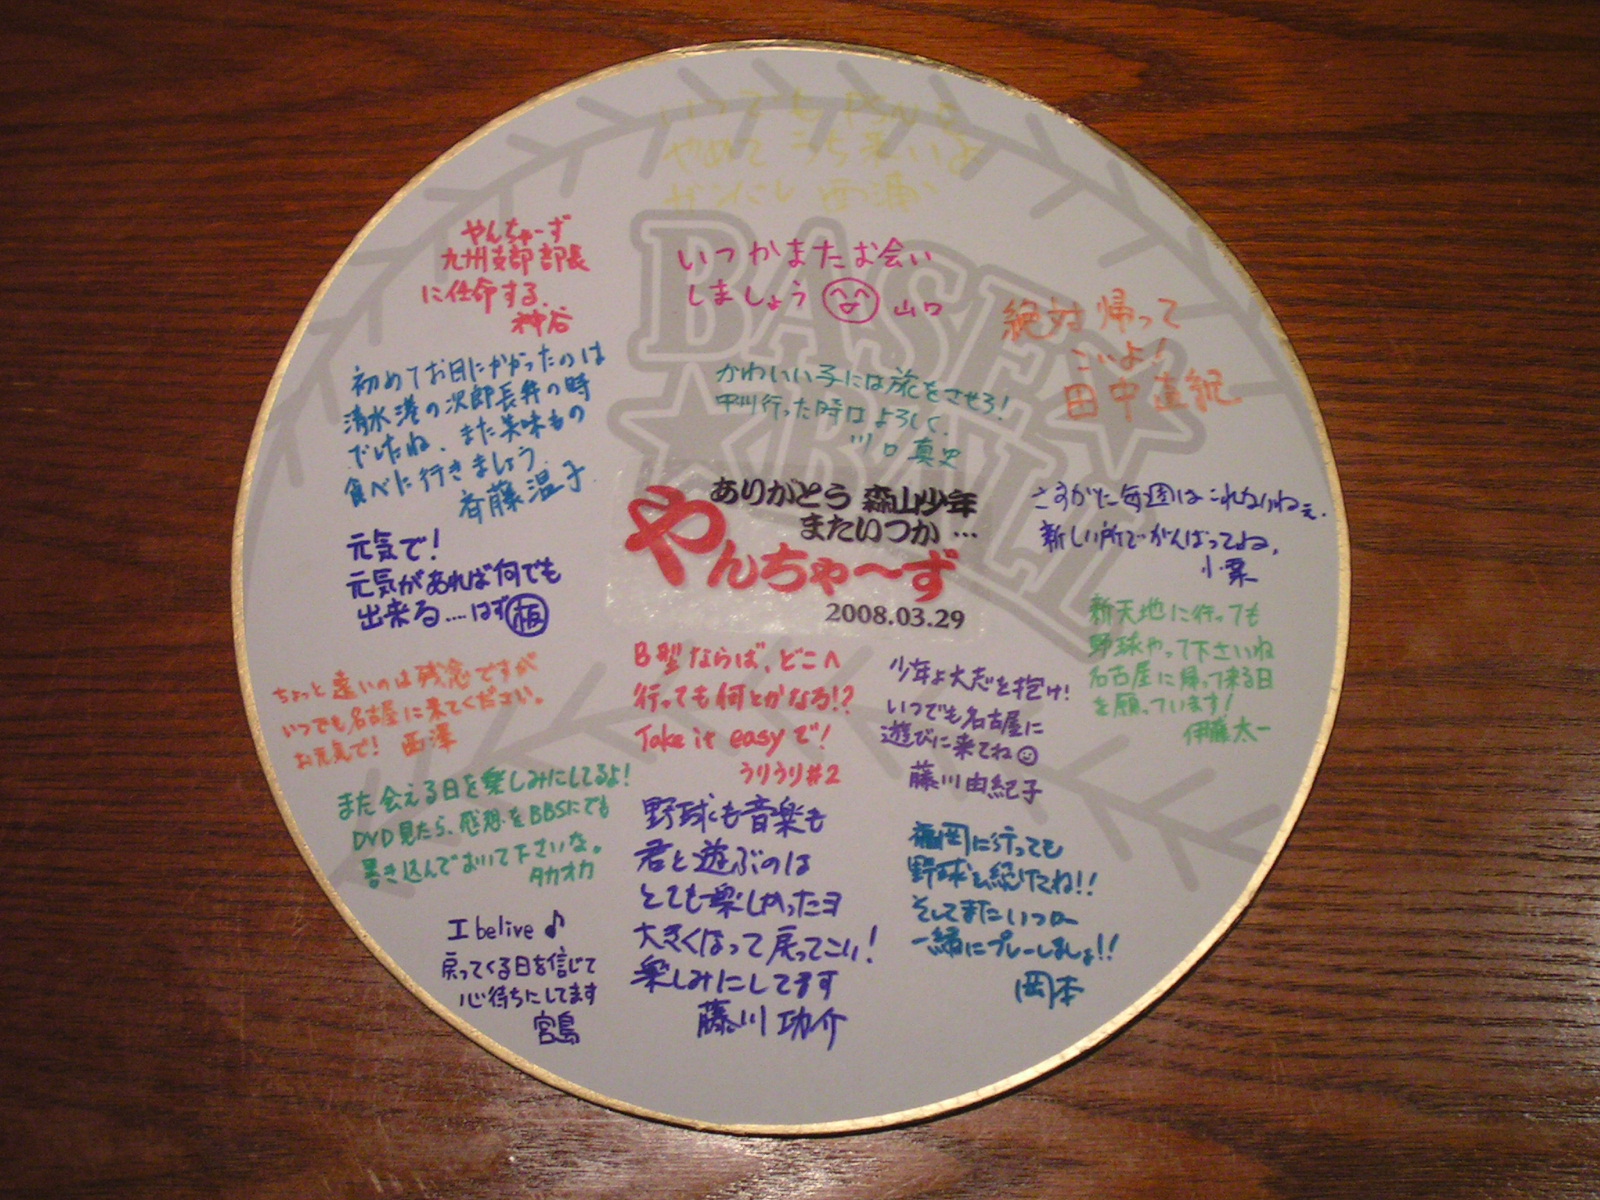 いつでも
やめて うち来いと
ガンバレ
やんちゃーず
九州支部 部長
に任命する。
神谷
いつかまたお会い
しましょう 山口
絶対 帰って
こいよ!
田中 直紀
BASE
BALL
初めてお目にかかったのは
清水港の次郎長丼の時
でしたね、また美味もの
食べに行きましょう。
斉藤温子
かわいい子には旅をさせろ!
中川行った時はよろしく。
川口真史
ありがとう 森山少年
またいつか…
やんちゃ〜ず
2008.03.29
さすがに毎週はこれないねぇ。
新しい所でがんばってね。
小栗
元気で!
元気があれば何でも
出来る....はず 板
新天地に行っても
野球やって下さいね
名古屋に帰って来る日
を願っています!
伊藤太一
ちょっと遠いのは残念ですが
いつでも名古屋に来てください。
お元気で! 西澤
B型ならば、どこへ
行っても何とかなる!?
Take it easy で!
うりうり#2
少年よ大志を抱け!
いつでも名古屋に
遊びに来てね
藤川由紀子
また会える日を楽しみにしてるよ!
DVD見たら、感想をBBSにでも
書き込んでおいて下さいな。
タカオカ
野球も音楽も
君と遊ぶのは
とても楽しかったヨ
大きくなって戻ってこい!
楽しみにしてます
藤川 功介
福岡に行っても
野球を続けてね!!
そしてまたいつか
一緒にプレーしましょ!!
岡本
I belive ♪
戻ってくる日を信じて
心待ちにしてます
宮島